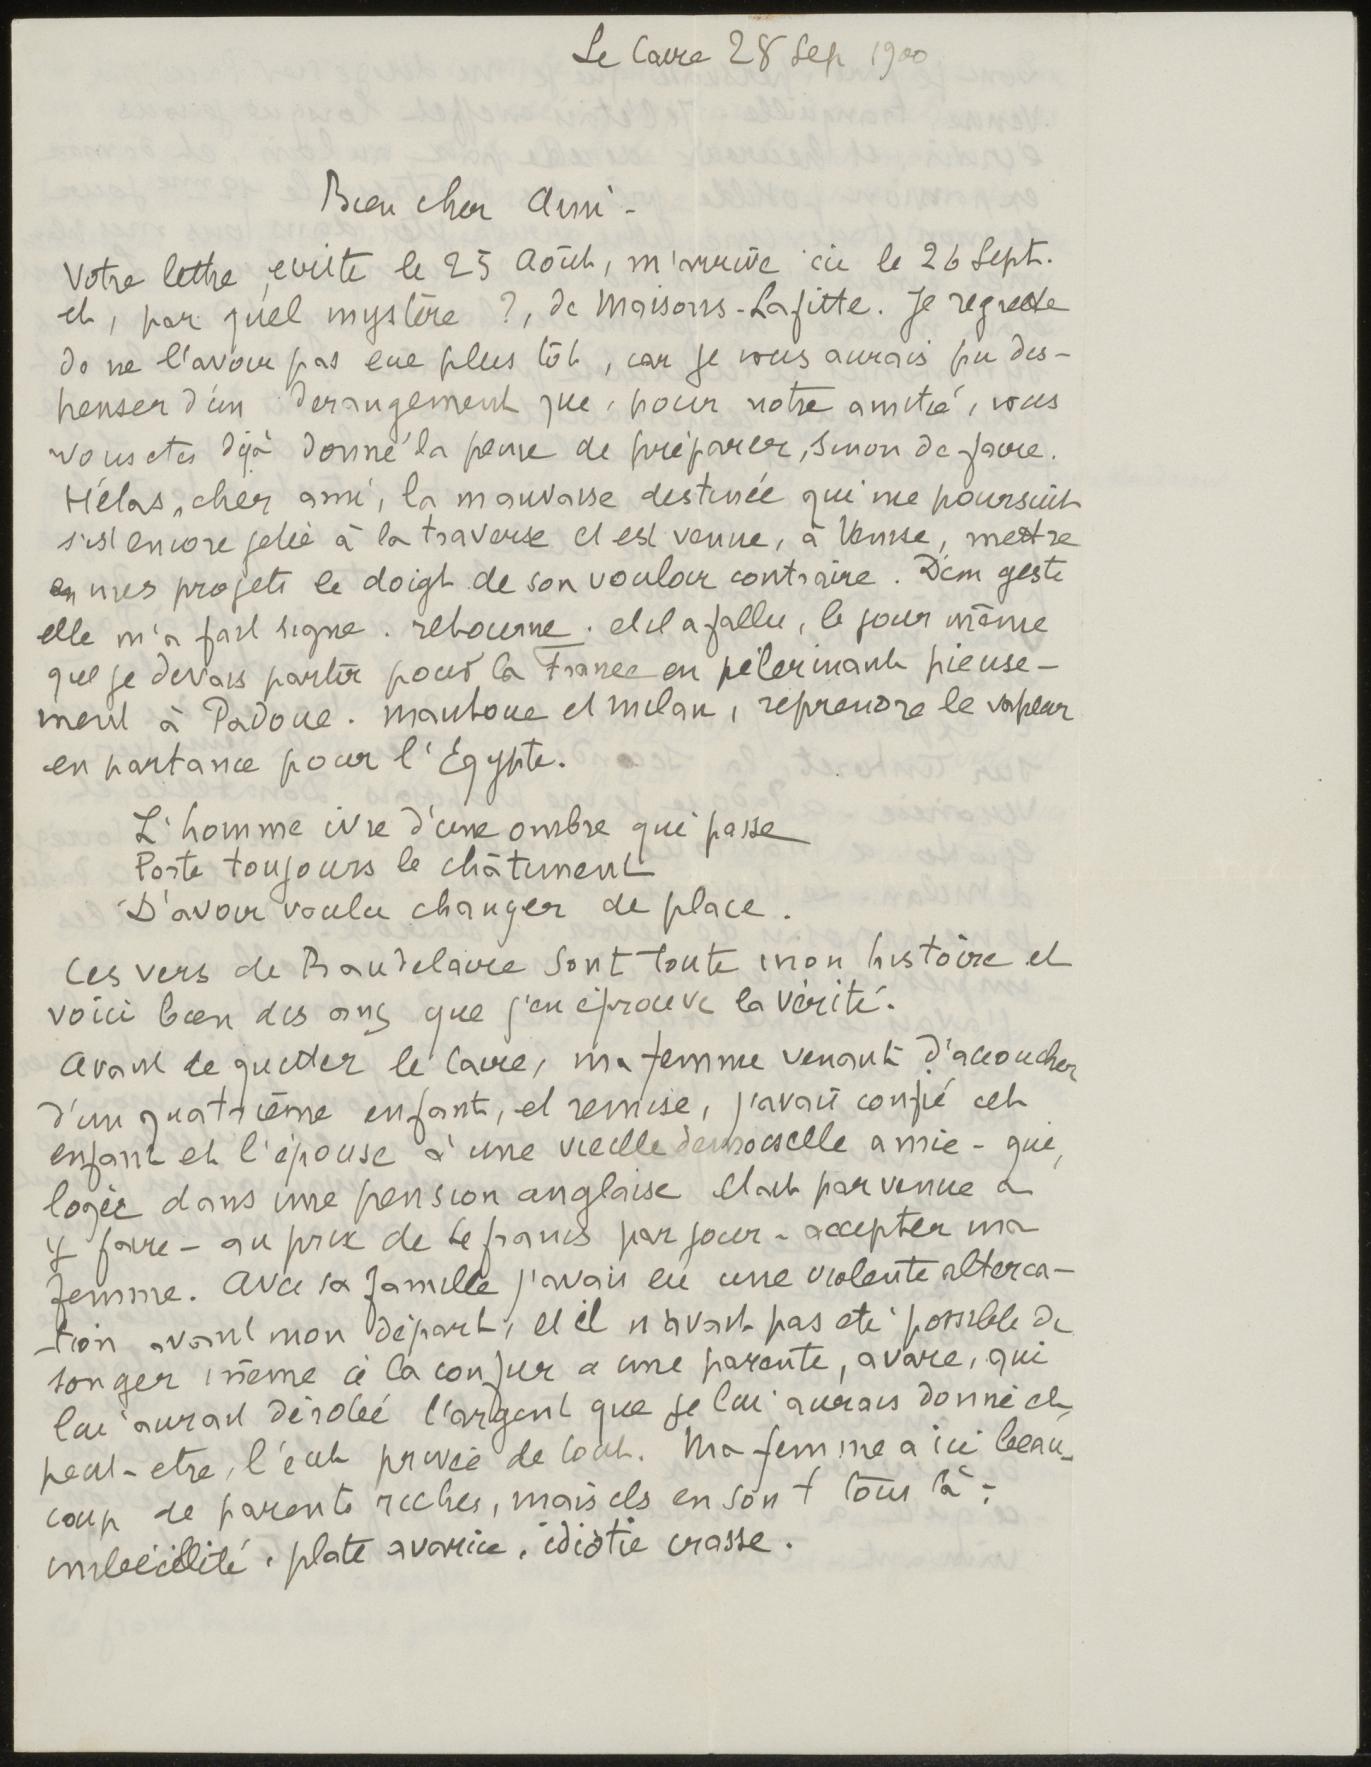 Le Caire 28 Sep 1900
Bien cher Ami -
Votre lettre, ecrite le 25 Août, m'arrive ici le 26 Sept.
et, par quel mystère ?, de Maisons-Lafitte. Je regrette
de ne l'avoir pas eue plus tôt, car je vous aurais pu dis-
penser d'un derangement que, pour notre amitié, vous
vous etes déjà donné la peine de préparer, sinon de faire.
Hélas, cher ami, la mauvaise destinée qui me poursuit
s'est encore jetée à la traverse et est venue, à Venise, mettre
en mes projets le doigt de son vouloir contraire. D'un geste
elle m'a fait signe. retourne. et il a fallu, le jour même
que je devais partir pour la France en pèlerinant pieuse-
ment à Padoue. Mantoue et Milan, reprendre le vapeur
en partance pour l'Egypte.
L'homme ivre d'une ombre qui passe
Porte toujours le châtiment
D'avoir voulu changer de place.
Ces vers de Baudelaire sont toute mon histoire et
voici bien des ans que j'en éprouve la vérité.
Avant de quitter le Caire, ma femme venant d'accoucher
d'un quatrième enfant, et remise, j'avais confié cet
enfant et l'épouse à une vieille demoiselle amie - qui,
logée dans une pension anglaise etait parvenue à
y faire - au prix de francs par jour - accepter ma
femme. Avec sa famille j'avais eu une violente alterca-
tion avant mon départ, et il n'avait pas eté possible de
songer même à la confier a une parente, avare, qui
lui aurait dérobé l'argent que je lui aurais donné et,
peut-etre, l'eut privée de tout. Ma femme a ici beau-
coup de parents riches, mais ils en sont tous là :
imbécillité, plate avarice, idiotie crasse.